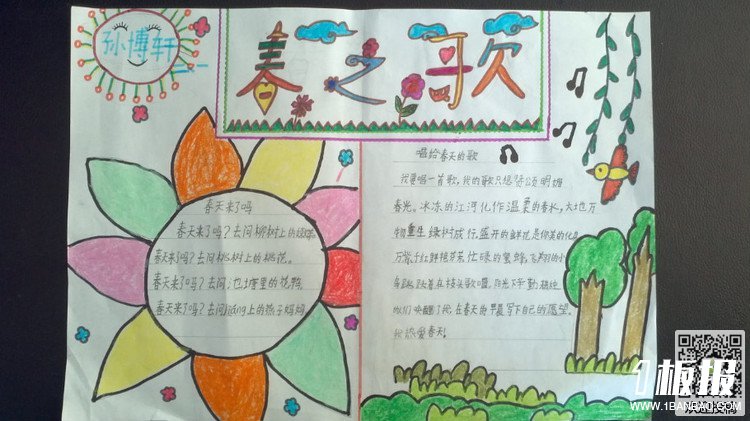 孙博轩
春之歌
春天来了吗
春天来了吗?去问柳树上的
春天来了吗?去问桃树上的桃花。
春天来了吗?去问池塘里的鸭
春天来了吗?去问上的燕子妈妈
唱给春天的歌
我要唱一首歌,我的歌只想颂明媚
春光。冰冻的江河化作温柔的春水,大地万
物重生绿树成行盛开的鲜花是你美的化
万紫千红鲜艳芬芳忙碌的蜜蜂,飞翔的小
鸟跳跃着在枝头歌唱,阳光下辛勤
你们唤醒了我,在春天的早晨写下自己的愿望。
我热爱春天。
1板报
WWW.1BANBAO.COM